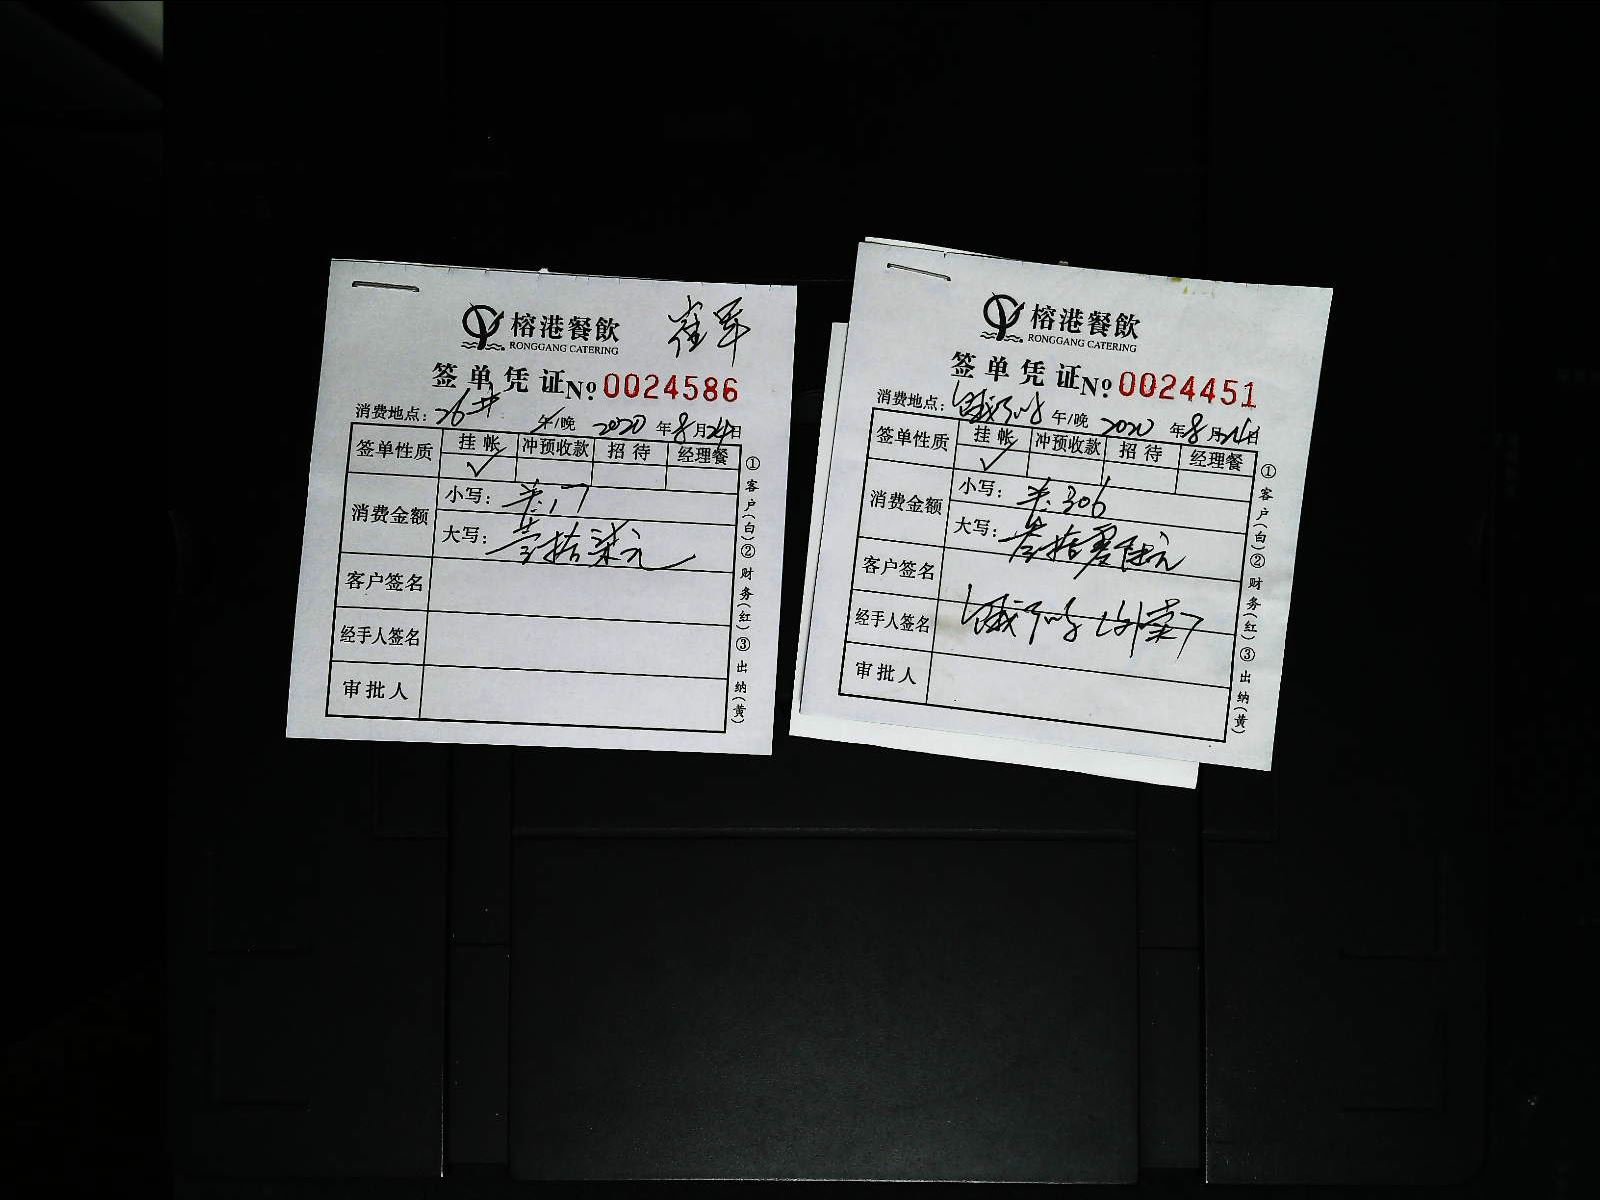 榕港餐飲
RONGGANG CATERING
崔军
签单凭证 No 0024586
消费地点：26# 午/晚 2020年8月24日
签单性质 挂帐 冲预收款 招待 经理餐
✓
消费金额
小写：¥:17
大写：壹拾柒元
客户签名
经手人签名
审批人
①客户(白)②财务(红)③出纳(黄)
榕港餐飲
RONGGANG CATERING
签单凭证 No 0024451
消费地点： 午/晚 2020年8月24日
签单性质 挂帐 冲预收款 招待 经理餐
✓
消费金额
小写：¥:306
大写：叁拾零陆元
客户签名
经手人签名
审批人
①客户(白)②财务(红)③出纳(黄)